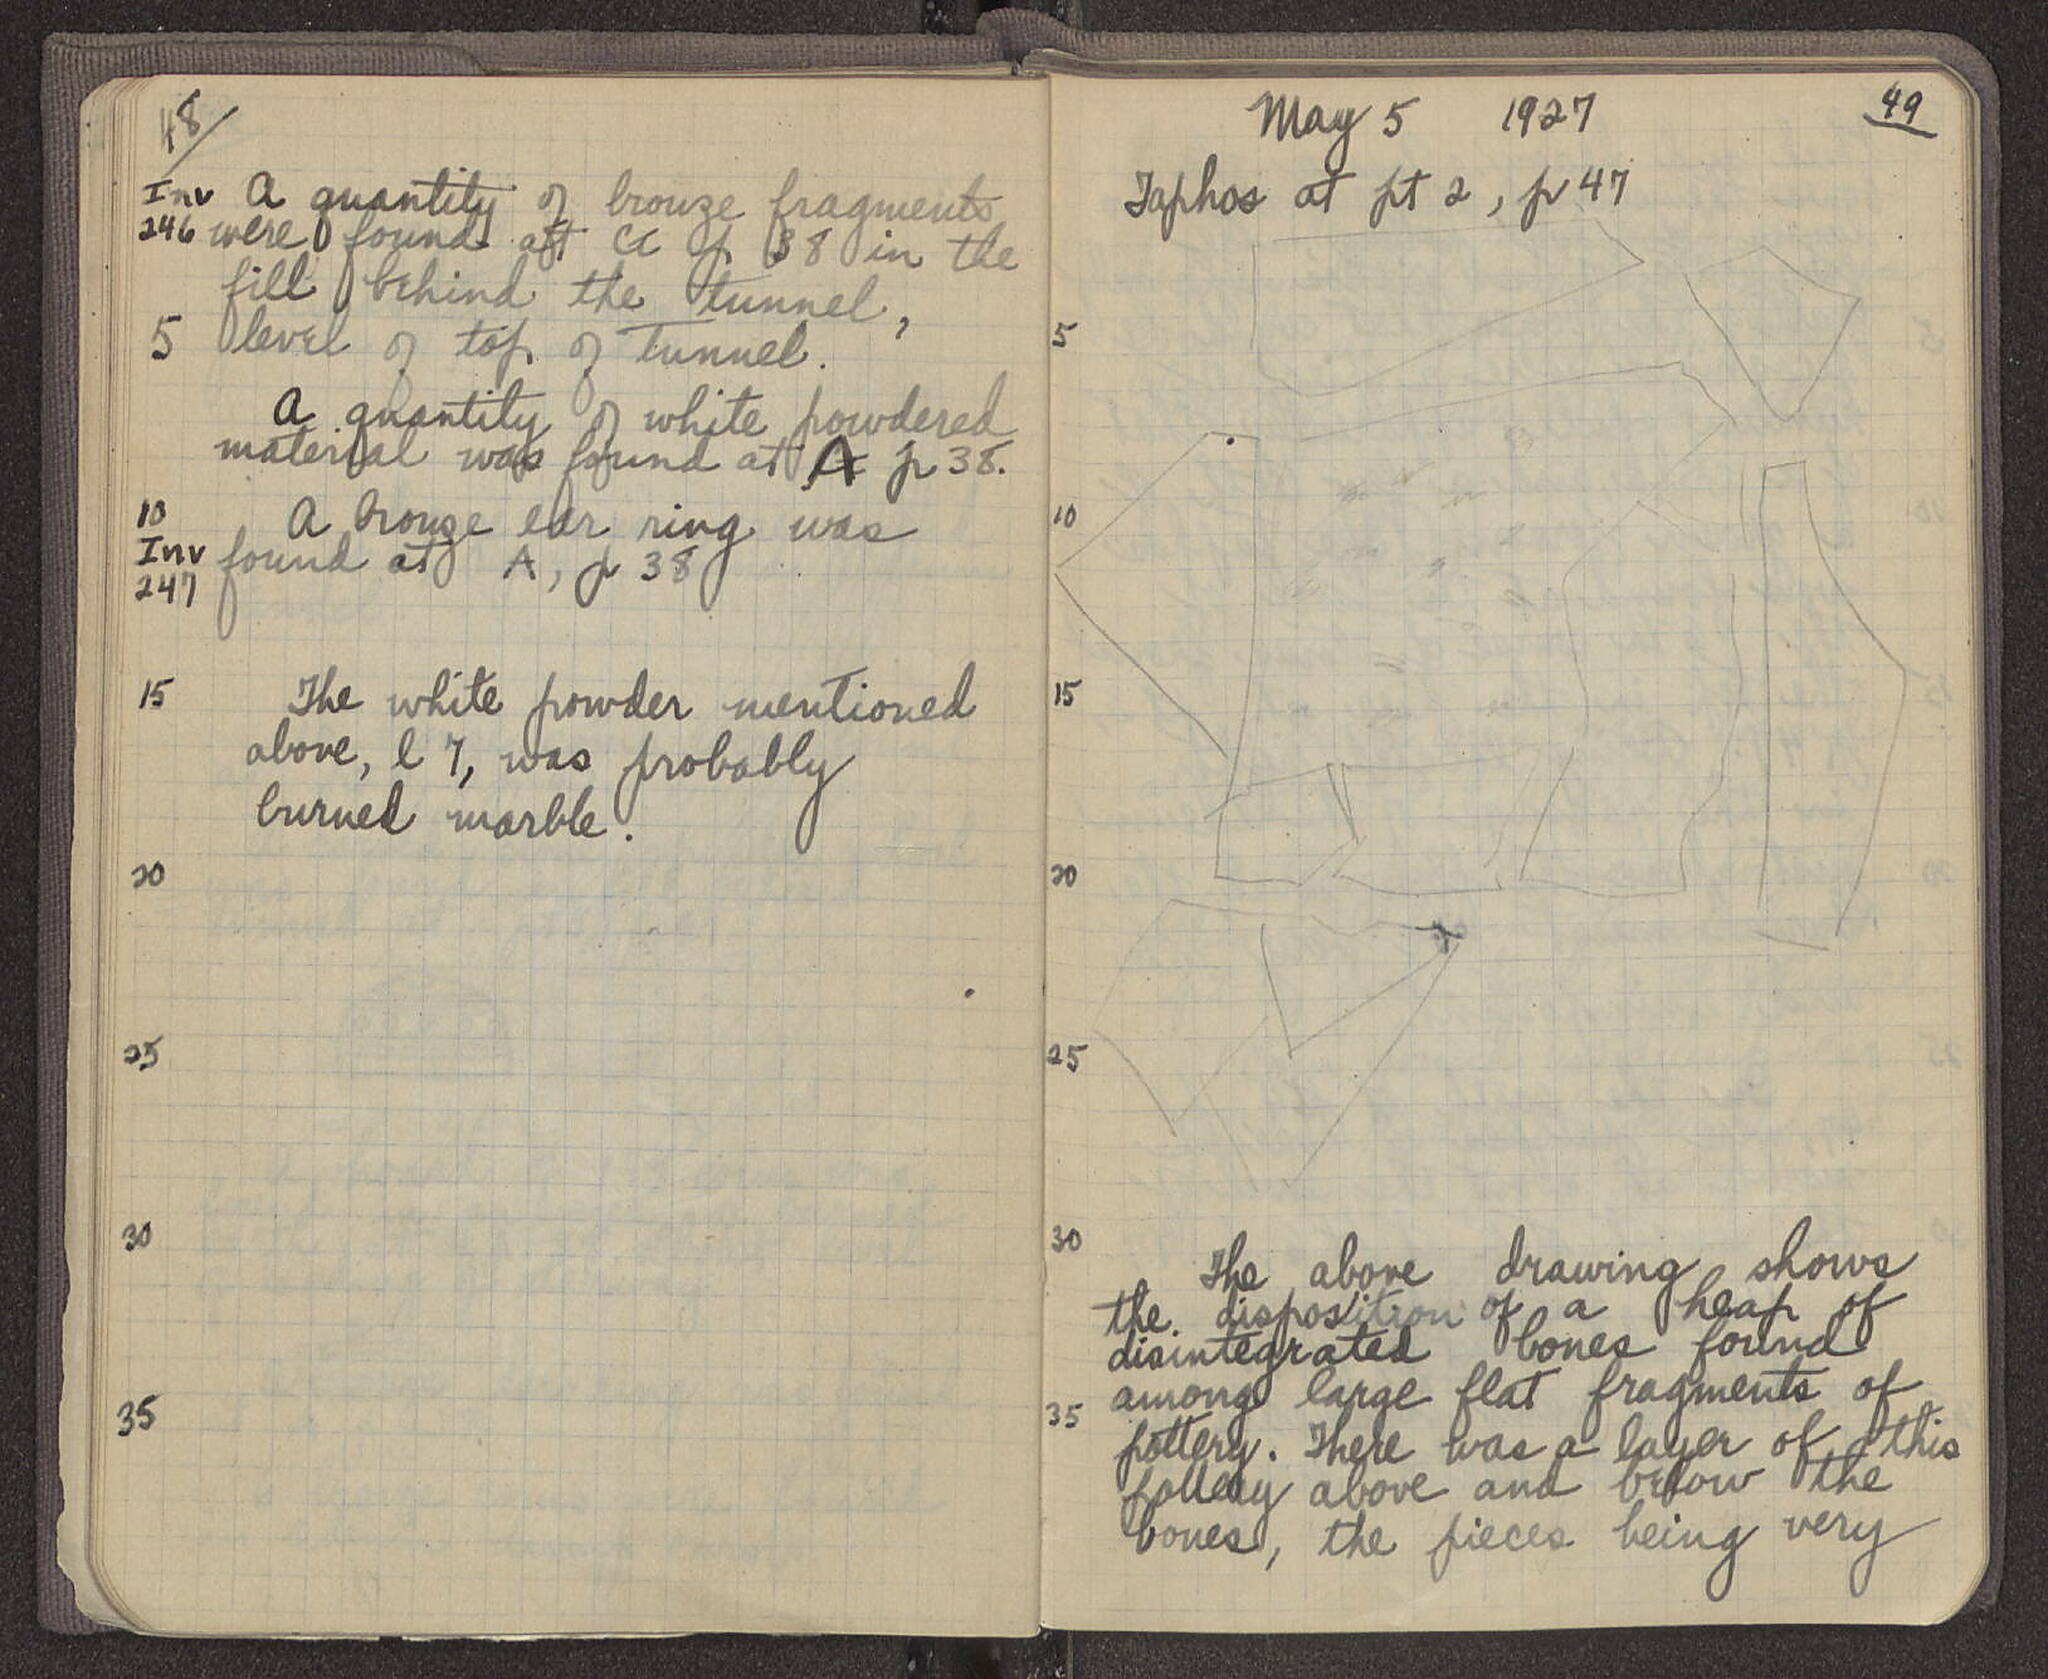 48
Inv A quantity of bronze fragments
246 were found at a p 38 in the
fill behind the tunnel,
5 level of top of Tunnel.
A quantity of white powdered
material was found at A p 38.
10 A bronze ear ring was
Inv found at A, p 38
247
15 The white powder mentioned
above, l 7, was probably
burned marble.
20
25
30
35
May 5 1927 49
Taphos at pt 2, p 47
5
10
15
20
25
30
The above drawing shows
the disposition of a heap of
disintegrated bones found
among large flat fragments of
35 pottery. There was a layer of this
pottery above and below the
bones, the pieces being very